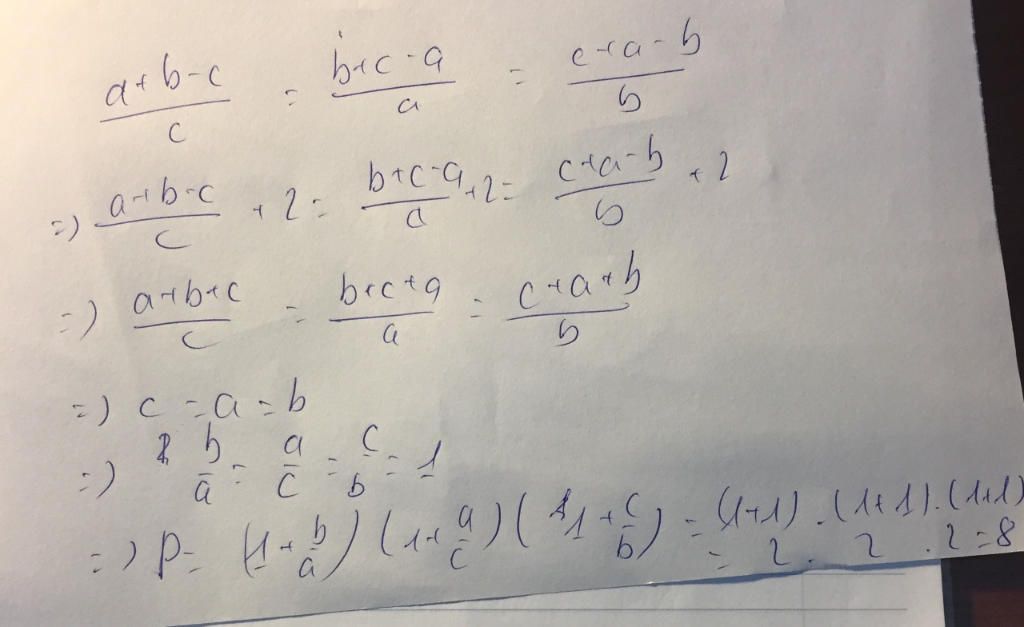 (a+b-c)/c = (b+c-a)/a = (c+a-b)/b
=) (a+b-c)/c + 2 = (b+c-a)/a +2 = (c+a-b)/b + 2
=) (a+b+c)/c = (b+c+a)/a = (c+a+b)/b
=) c = a = b
=) b/a = a/c = c/b = 1
=) P = (1+b/a)(1+a/c)(1+c/b) = (1+1).(1+1).(1+1)
= 2 . 2 . 2 = 8